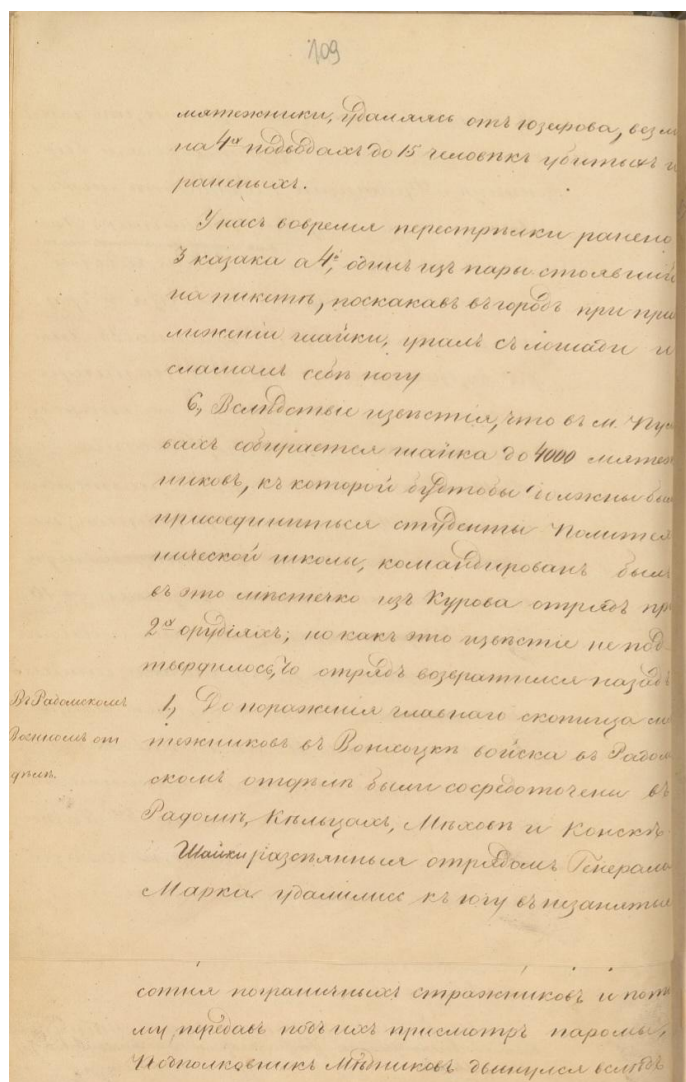 109
мятежники, удаляясь отъ Юзефова, везли
на 4х подводахъ до 15 человѣкъ убитыхъ и
раненыхъ.
У насъ вовремя перестрѣлки ранено
3 казака а 4й, одинъ изъ пары стоявшей
на пикетѣ, поскакавъ въ городъ при при
лиженіи шайки, упалъ съ лошади и
сламалъ себѣ ногу
6, Вслѣдствіе извѣстія, что въ м. Пул
вахъ собирается шайка до 4000 мятеж
никовъ, къ которой будтобы должны был
присоединиться студенты Политех
нической школы, командированъ былъ
въ это мѣстечко изъ Курова отрядъ пр
2х орудіяхъ; но какъ это извѣстіе не под
твердилось, то отрядъ возвратился назадъ
Въ Радомскомъ
Военномъ от
дѣлѣ.
1, До пораженія главнаго скопища мя
тежниковъ въ Вонхоцкѣ войска въ Радом
скомъ отдѣлѣ были сосредоточены въ
Радомѣ, Кѣльцахъ, Мѣховѣ и Конскѣ.
Шайки разсѣянныя отрядомъ Генерала
Марка удалились къ югу въ незанятые
сотня пограничныхъ стражниковъ и пото
му, передавъ подъ ихъ присмотръ паромы,
Подполковникъ Мѣдниковъ двинулся вслѣдъ